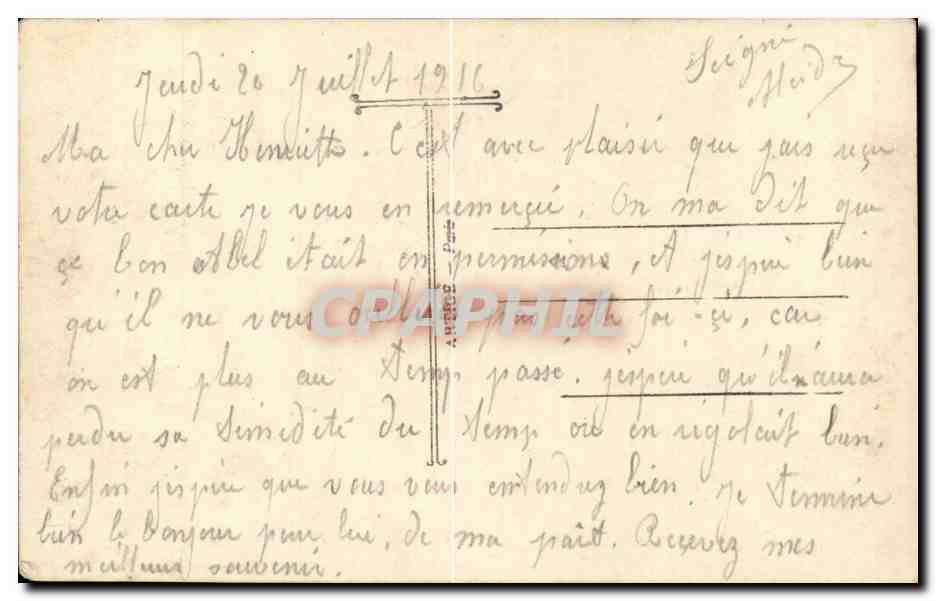 Jeudi 20 Juillet 1916
Ma cher Henriette. C'est avec plaisir que jais reçu
votre carte je vous en remerçie. On ma dit que
çe bon Abel était en permissions, et j'espere bien
qu'il ne vous oubli pas cette foi-çi, car
on est plus au temp passé. j'espere qu'il n'aura
perdu sa timédité du temp où en rigolait bien.
Enfin j'espere que vous vous entendrez bien je termine
bien le bonjour pour lui, de ma pàrt. Reçevez mes
meilleur souvenir.
Seigné
ARBRIE - Paris
CPAPHIL